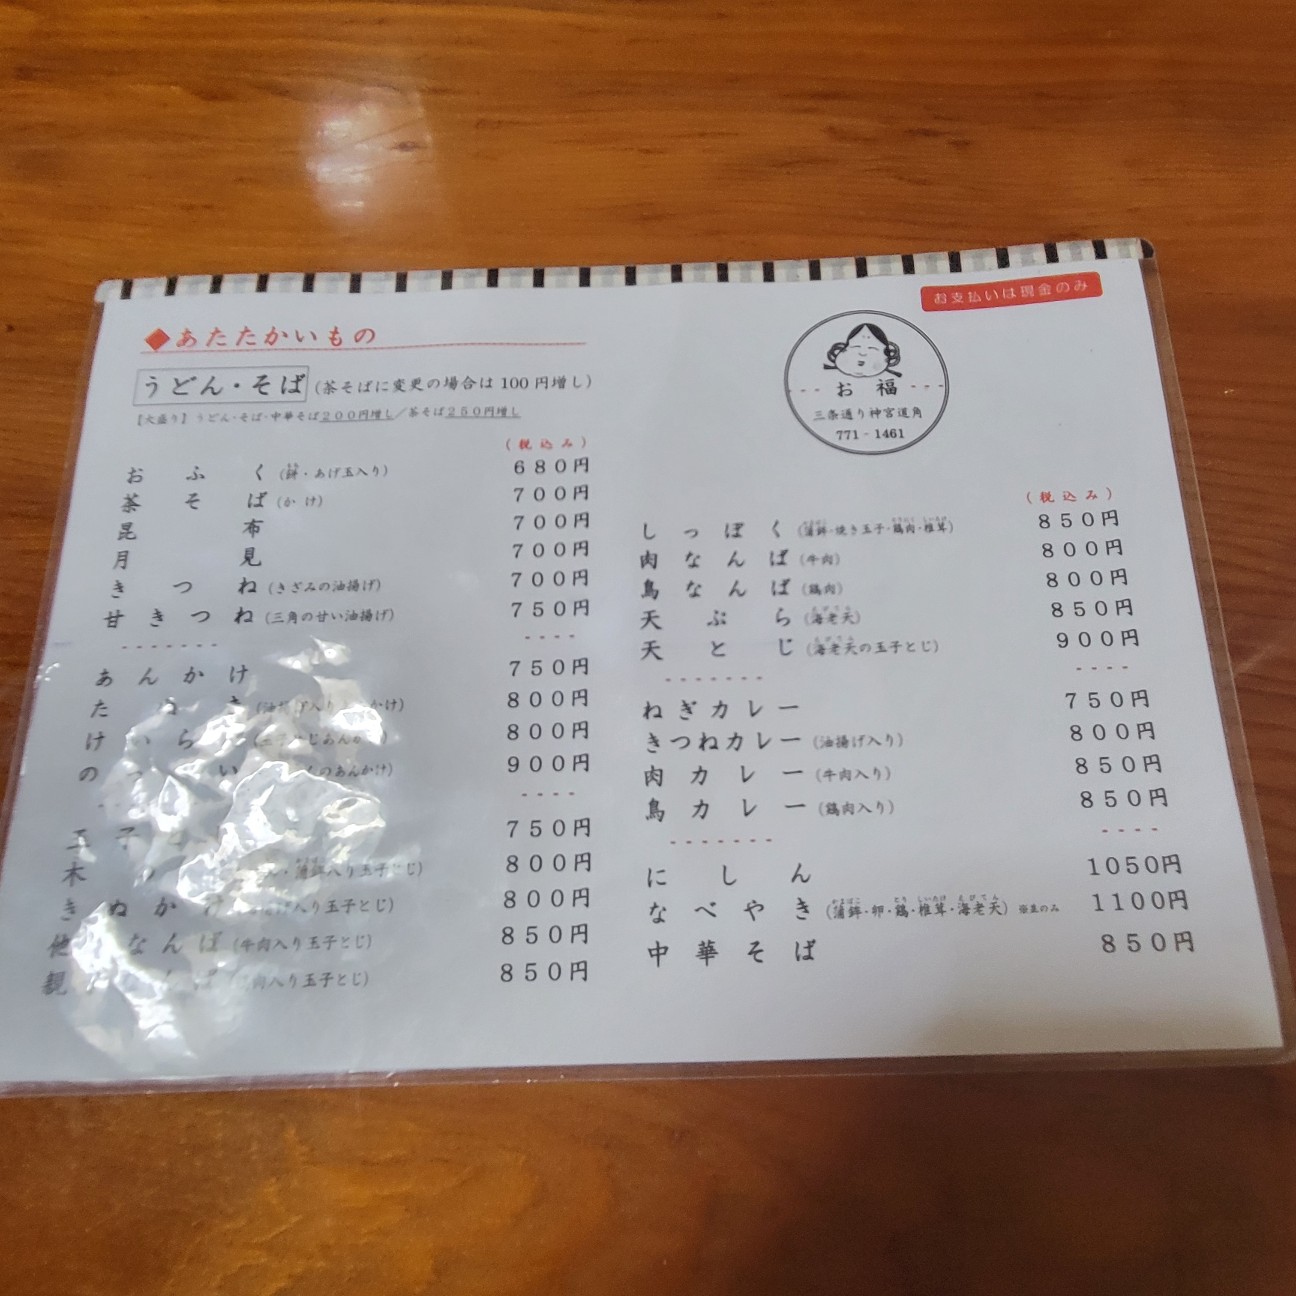 お支払いは現金のみ
◆あたたかいもの
うどん・そば (茶そばに変更の場合は100円増し)
【大盛り】うどん・そば・中華そば200円増し/茶そば250円増し
お福
三条通り神宮道角
771-1461
(税込み)
おふく (餅・あげ玉入り) 680円
茶そば (かけ) 700円
昆布 700円
月見 700円
きつね (きざみの油揚げ) 700円
甘きつね (三角の甘い油揚げ) 750円
あんかけ 750円
たぬき 800円
けいらん 800円
のっぺい 900円
玉子とじ 750円
木の葉 (蒲鉾入り玉子とじ) 800円
きぬかけ 入り玉子とじ) 800円
他人なんば (牛肉入り玉子とじ) 850円
親子なんば 肉入り玉子とじ) 850円
(税込み)
しっぽく (蒲鉾・焼き玉子・鶏肉・椎茸) 850円
肉なんば (牛肉) 800円
鳥なんば (鶏肉) 800円
天ぷら (海老天) 850円
天とじ (海老天の玉子とじ) 900円
ねぎカレー 750円
きつねカレー (油揚げ入り) 800円
肉カレー (牛肉入り) 850円
鳥カレー (鶏肉入り) 850円
にしん 1050円
なべやき (蒲鉾・卵・鶏・椎茸・海老天) 1100円
中華そば 850円